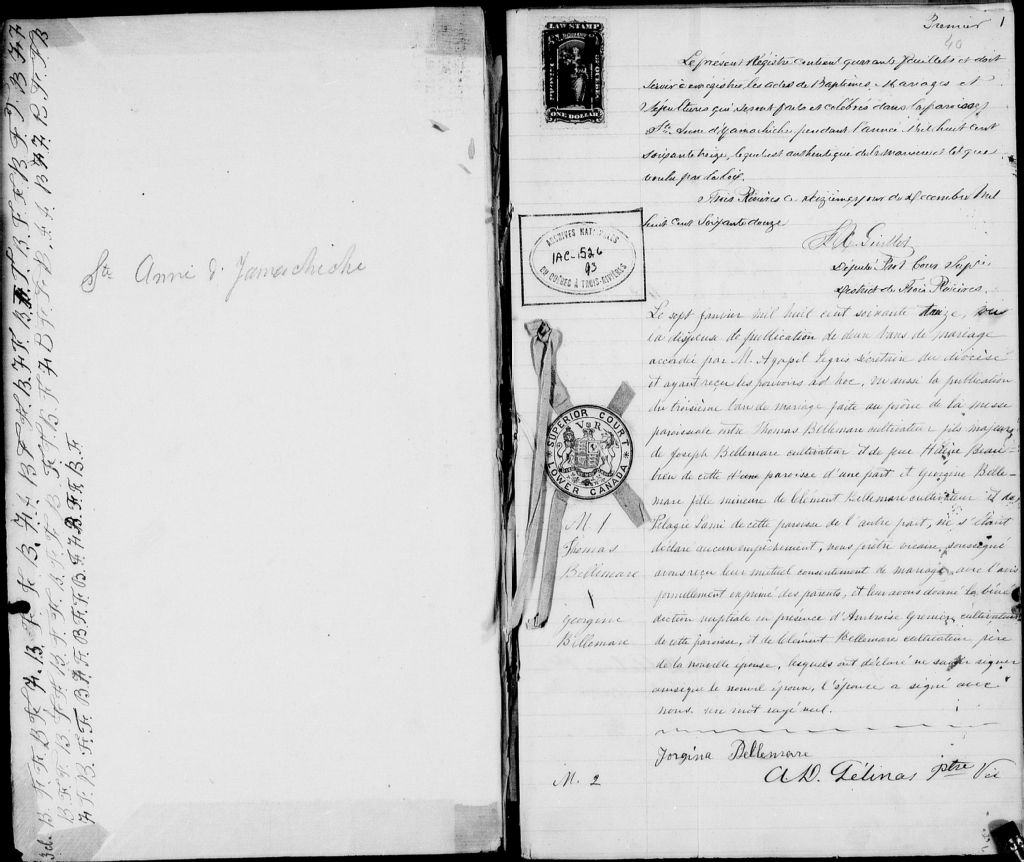 Ste Anne d'Yamachiche
Premier 1
40
LAW STAMP
ONE DOLLAR
Le présent Régistre contient quarante feuillets et doit
servir à enrégistrer les actes de Baptêmes, Mariages et
Sépultures qui seront faits et célébrés dans la paroisse
Ste Anne d'Yamachiche pendant l'année Mil huit cent
soixante treize, lequel est authentiqué de la manière et tel que
voulu par la loi.
Trois Rivières ce seizième jour de Décembre Mil
huit cent Soixante douze
Député Prot Cour Supre
District de Trois Rivières.
ARCHIVES NATIONALES
IAC-1526
93
DU QUÉBEC À TROIS-RIVIÈRES
SUPERIOR COURT
V R
LOWER CANADA
Le sept janvier mil huit cent soixante treize, vu
la dispense de publication de deux bans de mariage
accordée par M. Agapit Legris sécrétaire du diocèse
et ayant reçu les pouvoirs ad hoc, vu aussi la publication
du troisième ban de mariage faite au prône de la messe
paroissiale entre Thomas Bellemare cultivateur fils majeur
de Joseph Bellemare cultivateur et de feue Hélène Beau-
bien de cette d'une paroisse d'une part et Georgine Belle-
mare fille mineure de Clément Bellemare cultivateur et de
Pélagie Lami de cette paroisse de l'autre part, ne s'étant
déclaré aucun empêchement, nous prêtre vicaire, soussigné
avons reçu leur mutuel consentement de mariage avec l'avis
formellement exprimé des parents, et leur avons donné la béné-
diction nuptiale en présence d'Ambroise Grenier cultivateur
de cette paroisse, et de Clément Bellemare cultivateur, père
de la nouvelle épouse, lesquels ont déclaré ne savoir signer
ainsi que le nouvel époux, l'épouse a signé avec
nous. un mot rayé nul.
M 1
Thomas
Bellemare
&
Georgine
Bellemare
Jorgina Bellemare
A.D. Gélinas ptre Vic
M. 2